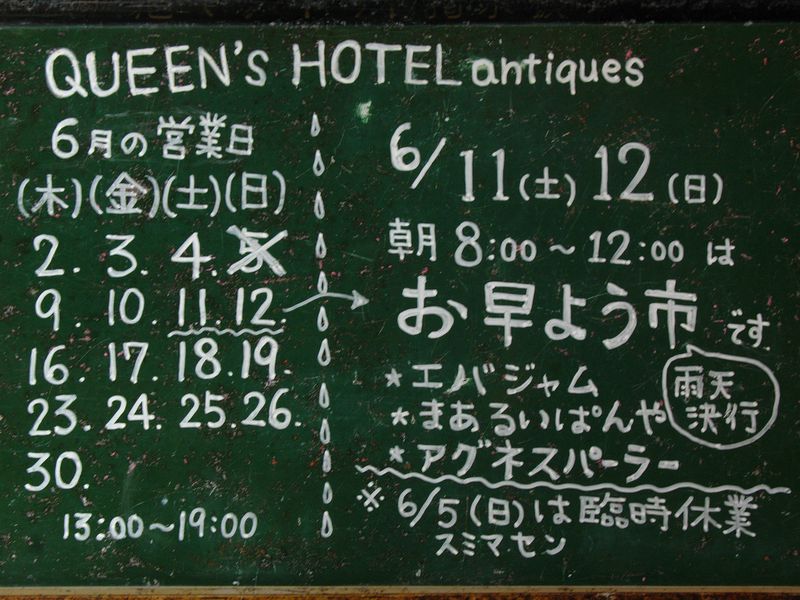 QUEEN'S HOTEL antiques
6月の営業日
(木)(金)(土)(日)
2. 3. 4. 5
9. 10. 11. 12.
16. 17. 18. 19.
23. 24. 25. 26.
30.
13:00~19:00
6/11(土) 12(日)
朝 8:00~12:00 は
お早よう市です
★エバジャム
★まあるいぱんや
★アグネスパーラー
雨天
決行
※6/5(日)は臨時休業
スミマセン